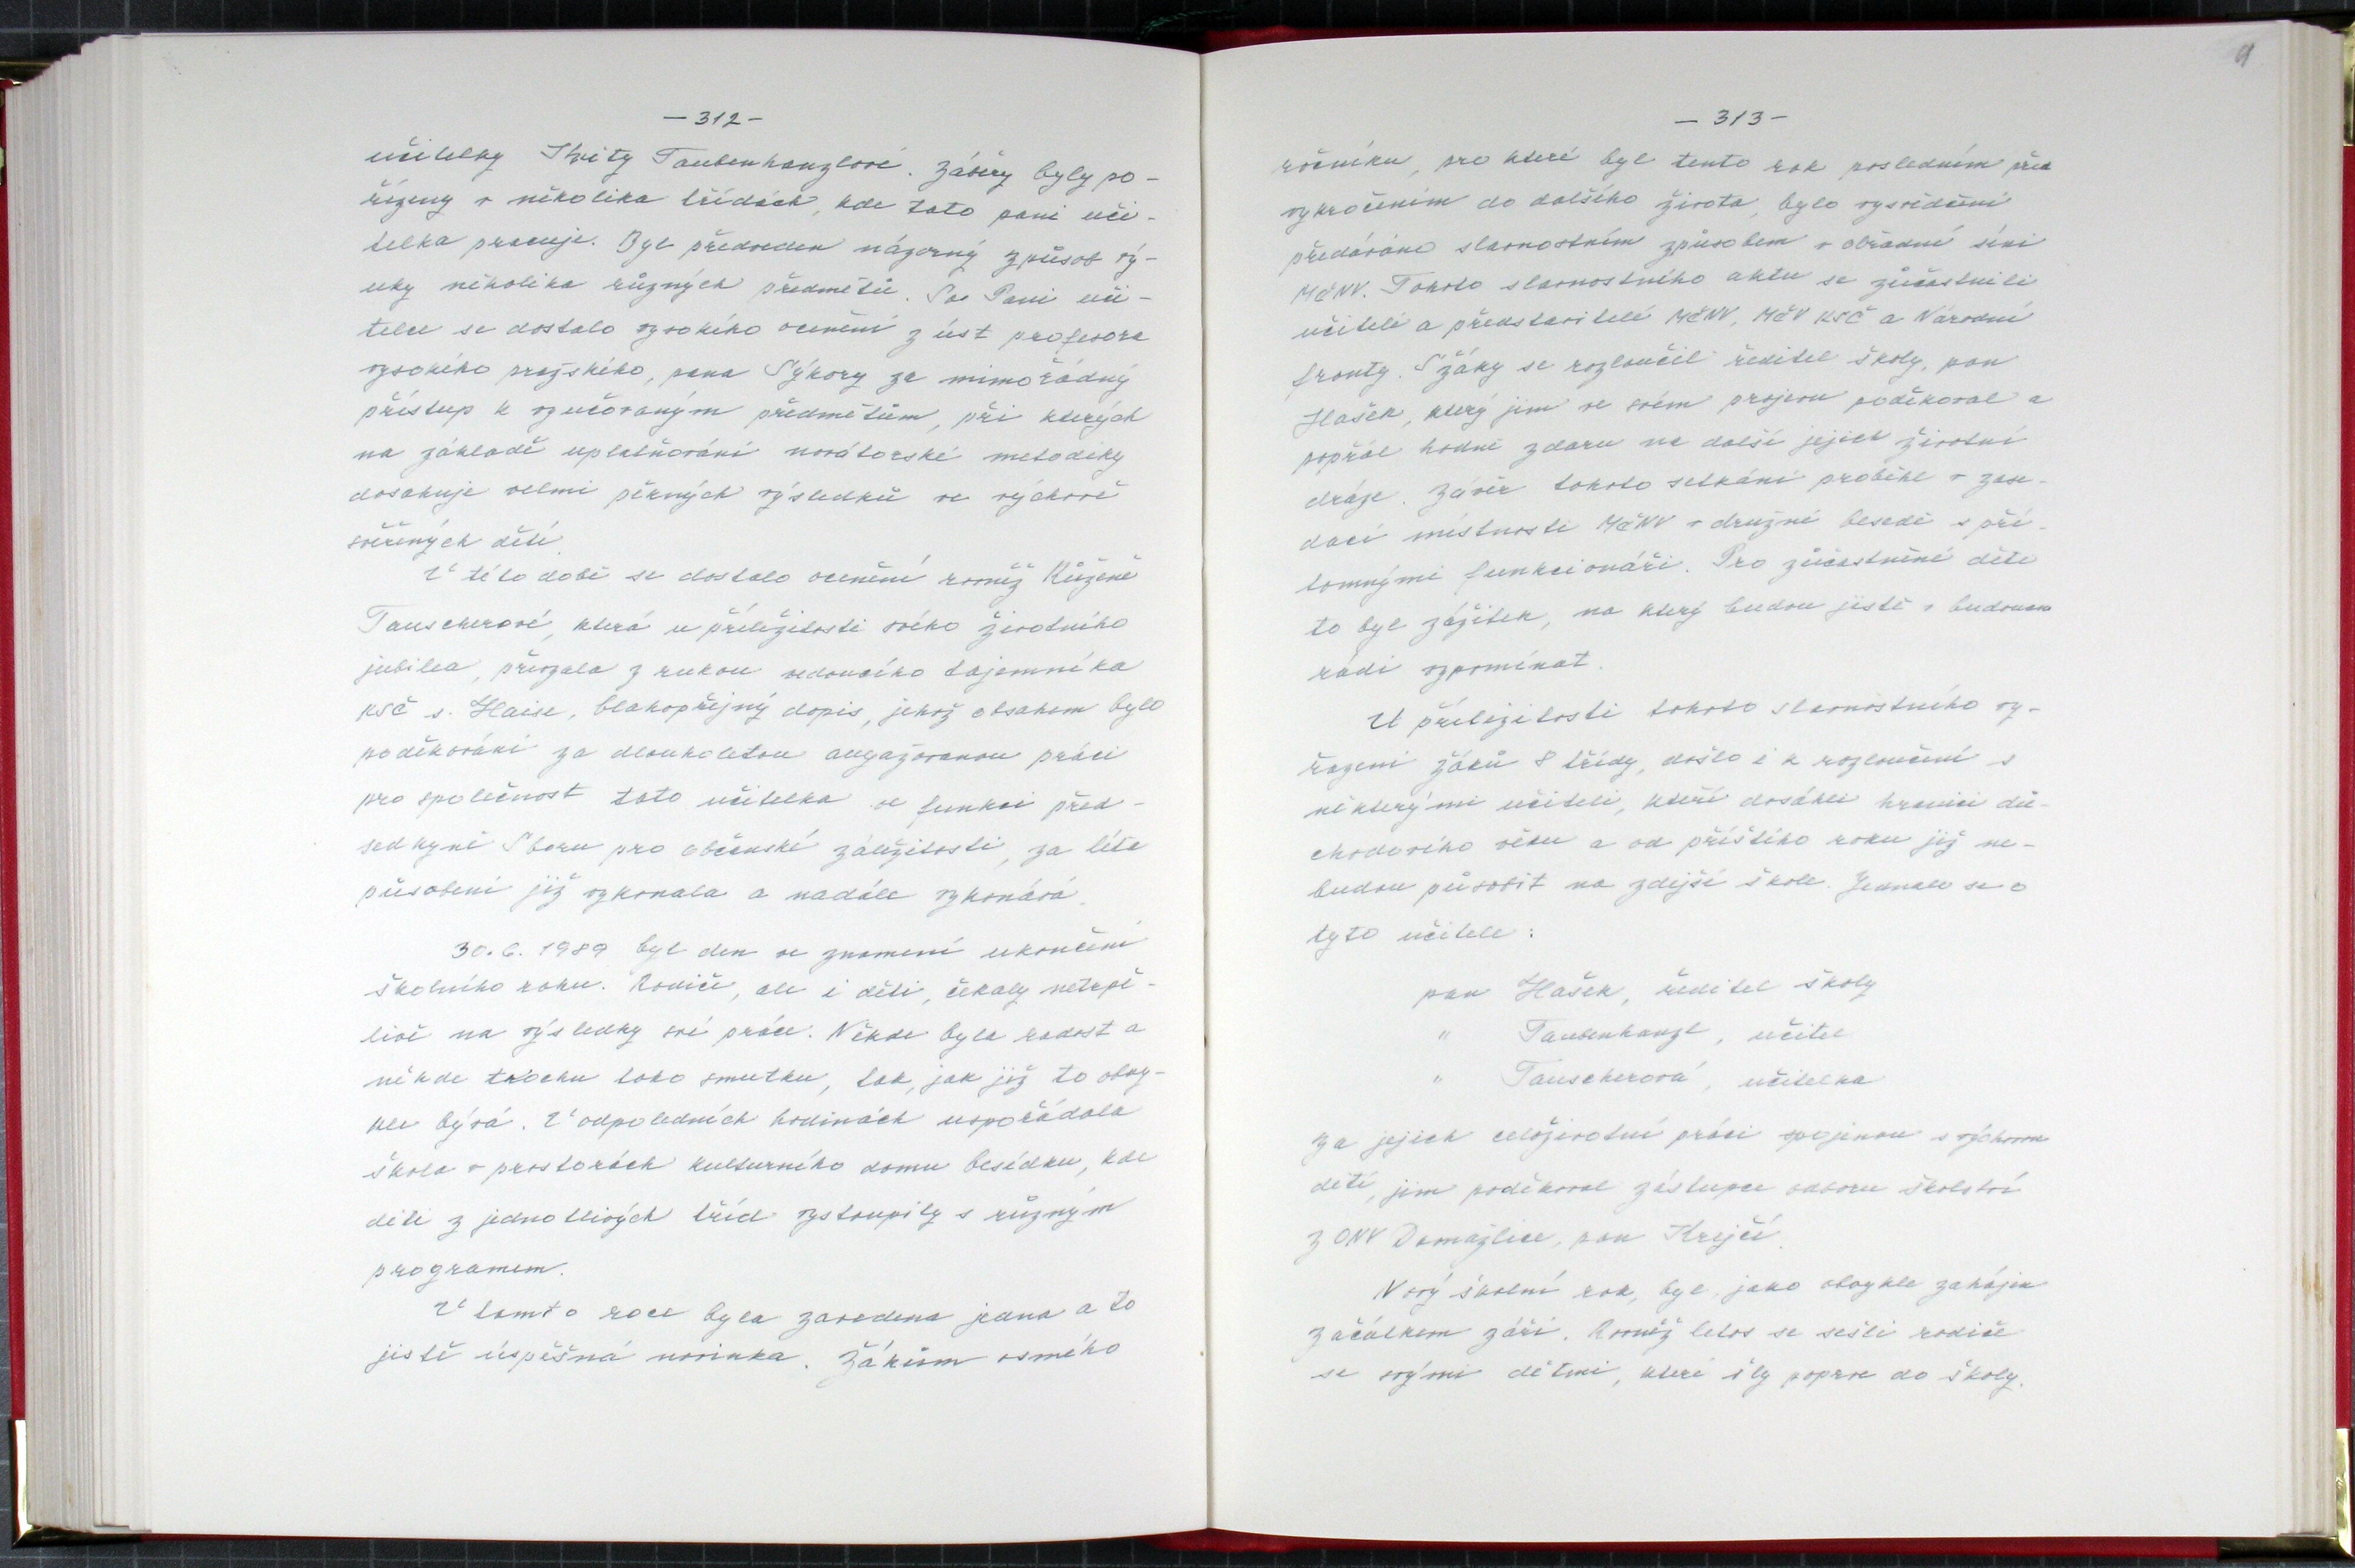 — 312 –
učitelky Květy Taubenhanzlové. Záběry byly po-
řízeny v několika třídách, kde tato paní uči-
telka pracuje. Byl předveden názorný způsob vý-
uky několika různých předmětů. Paní uči-
telce se dostalo vysokého ocenění z úst profesora
vysokého pražského, pana Sýkory za mimořádný
přístup k vyučovaným předmětům, při kterých
na základě uplatňování novátorské metodiky
dosahuje velmi pěkných výsledků ve výchově
svěřených dětí.
V této době se dostalo ocenění rovněž Růženě
Tauscherové, která u příležitosti svého životního
jubilea, převzala z rukou vedoucího tajemníka
KSČ s. Haise, blahopřejný dopis, jehož obsahem bylo
poděkování za dlouholetou angažovanou práci
pro společnost tato učitelka ve funkci před-
sedkyně Sboru pro občanské záležitosti, za léta
působení již vykonala a nadále vykonává.
30. 6. 1989 byl den ve znamení ukončení
školního roku. Rodiče, ale i děti, čekaly netrpě-
livě na výsledky své práce. Někde byla radost a
někde trochu toho smutku, tak, jak již to obvy-
kle bývá. V odpoledních hodinách uspořádala
škola v prostorách kulturního domu besídku, kde
děti z jednotlivých tříd vystoupily s různým
programem.
V tomto roce byla zavedena jedna a to
jistě úspěšná novinka. Žákům osmého
9
— 313 –
ročníku, pro které byl tento rok posledním před
vykročením do dalšího života, bylo vysvědčení
předáváno slavnostním způsobem v obřadní síni
MěNV. Tohoto slavnostního aktu se zúčastnili
učitelé a představitelé MěNV, MěV KSČ a Národní
fronty. S žáky se rozloučil ředitel školy, pan
Hašek, který jim ve svém projevu poděkoval a
popřál hodně zdaru na další jejich životní
dráze. Závěr tohoto setkání proběhl v zase-
dací místnosti MěNV v družné besedě s pří-
tomnými funkcionáři. Pro zúčastněné děti
to byl zážitek, na který budou jistě v budoucnu
rádi vzpomínat.
U příležitosti tohoto slavnostního vy-
řazení žáků 8 třídy, došlo i k rozloučení s
některými učiteli, kteří dosáhli hranici dů-
chodového věku a od příštího roku již ne-
budou působit na zdejší škole. Jednalo se o
tyto učitele:
pan Hašek, ředitel školy
" Taubenhanzl, učitel
" Tauscherová, učitelka
Za jejich celoživotní práci spojenou s výchovou
dětí, jim poděkoval zástupce odboru školství
z ONV Domažlice, pan Krejčí.
Nový školní rok, byl, jako obvykle zahájen
začátkem září. Rovněž letos se sešli rodiče
se svými dětmi, které šly poprve do školy.